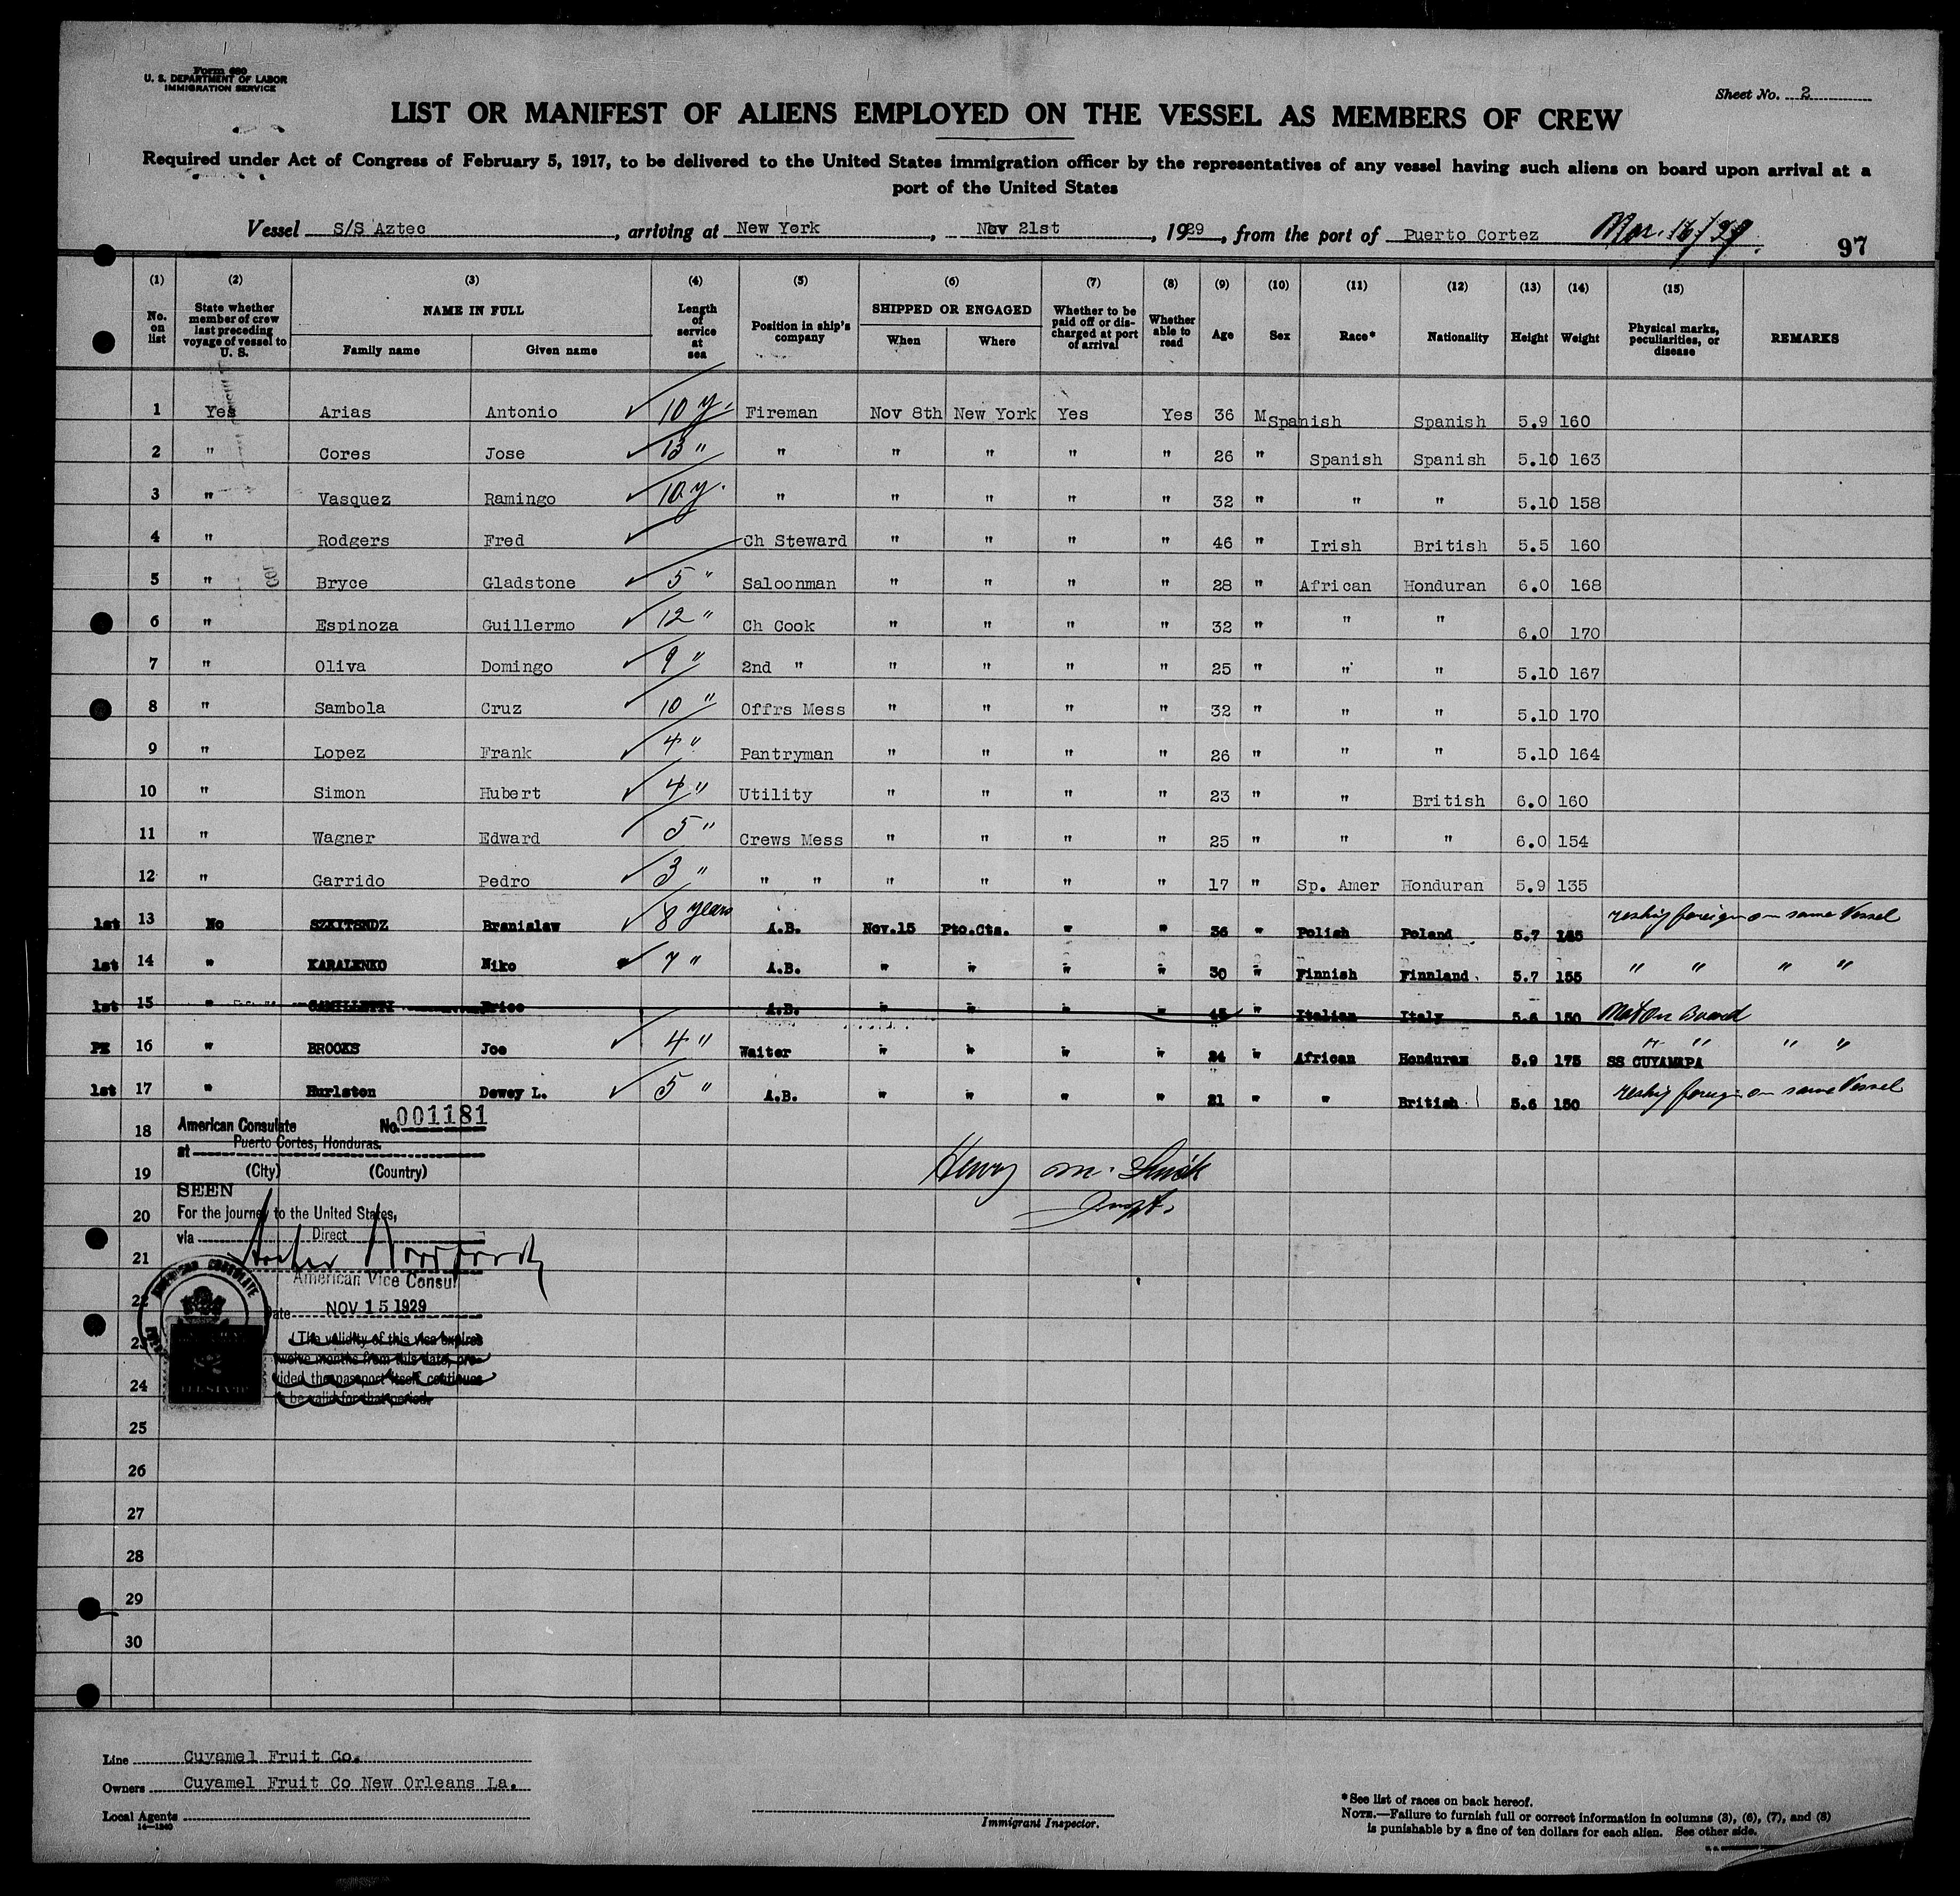 Form 680
U. S. DEPARTMENT OF LABOR
IMMIGRATION SERVICE
Sheet No. 2
LIST OR MANIFEST OF ALIENS EMPLOYED ON THE VESSEL AS MEMBERS OF CREW
Required under Act of Congress of February 5, 1917, to be delivered to the United States immigration officer by the representatives of any vessel having such aliens on board upon arrival at a
port of the United States
Vessel S/S Aztec, arriving at New York, Nov 21st, 1929, from the port of Puerto Cortez Mar. 16/29.
97
(1) (2) (3) (4) (5) (6) (7) (8) (9) (10) (11) (12) (13) (14) (15)
No. on list
State whether member of crew last preceding voyage of vessel to U. S.
NAME IN FULL
Family name Given name
Length of service at sea
Position in ship's company
SHIPPED OR ENGAGED
When Where
Whether to be paid off or discharged at port of arrival
Whether able to read
Age Sex Race* Nationality Height Weight
Physical marks, peculiarities, or disease
REMARKS
1 Yes Arias Antonio 10 y. Fireman Nov 8th New York Yes Yes 36 M Spanish Spanish 5.9 160
2 " Cores Jose 13 " " " " " " 26 " Spanish Spanish 5.10 163
3 " Vasquez Ramingo 10 y. " " " " " 32 " " " 5.10 158
4 " Rodgers Fred Ch Steward " " " " 46 " Irish British 5.5 160
5 " Bryce Gladstone 5 " Saloonman " " " " 28 " African Honduran 6.0 168
6 " Espinoza Guillermo 12 " Ch Cook " " " " 32 " " " 6.0 170
7 " Oliva Domingo 9 " 2nd " " " " " 25 " " " 5.10 167
8 " Sambola Cruz 10 " Offrs Mess " " " " 32 " " " 5.10 170
9 " Lopez Frank 4 " Pantryman " " " " 26 " " " 5.10 164
10 " Simon Hubert 4 " Utility " " " " 23 " " British 6.0 160
11 " Wagner Edward 5 " Crews Mess " " " " 25 " " " 6.0 154
12 " Garrido Pedro 3 " " " " " " " 17 " Sp. Amer Honduran 5.9 135
1st 13 No Branislaw 8 years A.B. Nov.15 Pto.Cts. " " 36 " Polish Poland 5.7 reship foreign on same Vessel
1st 14 " KARALENKO Niko 7 " A.B. " " " " 30 " Finnish Finnland 5.7 155 " " " "
1st 15 " CAMILLETTI A.B. " " " " 45 " Italian Italy 5.6 150 Not on Board
16 " BROOKS Joe 4 " Waiter " " " " 24 " African Honduran 5.9 175 SS CUYAMAPA " " " "
1st 17 " Hurlston Dewey L. 5 " A.B. " " " " 21 " " British 5.6 150 reship foreign on same Vessel
18
19
20
21
22
23
24
25
26
27
28
29
30
American Consulate No. 001181
at Puerto Cortes, Honduras.
(City) (Country)
SEEN
For the journey to the United States,
via Direct
American Vice Consul
Date NOV 15 1929
(The validity of this visa expires
twelve months from this date, pro-
vided the passport itself continues
to be valid for that period.
AMERICAN CONSULATE
Henry M.
Inspt.
Line Cuyamel Fruit Co.
Owners Cuyamel Fruit Co New Orleans La.
Local Agents
14—1240
Immigrant Inspector.
*See list of races on back hereof.
NOTE.—Failure to furnish full or correct information in columns (3), (6), (7), and (8)
is punishable by a fine of ten dollars for each alien. See other side.